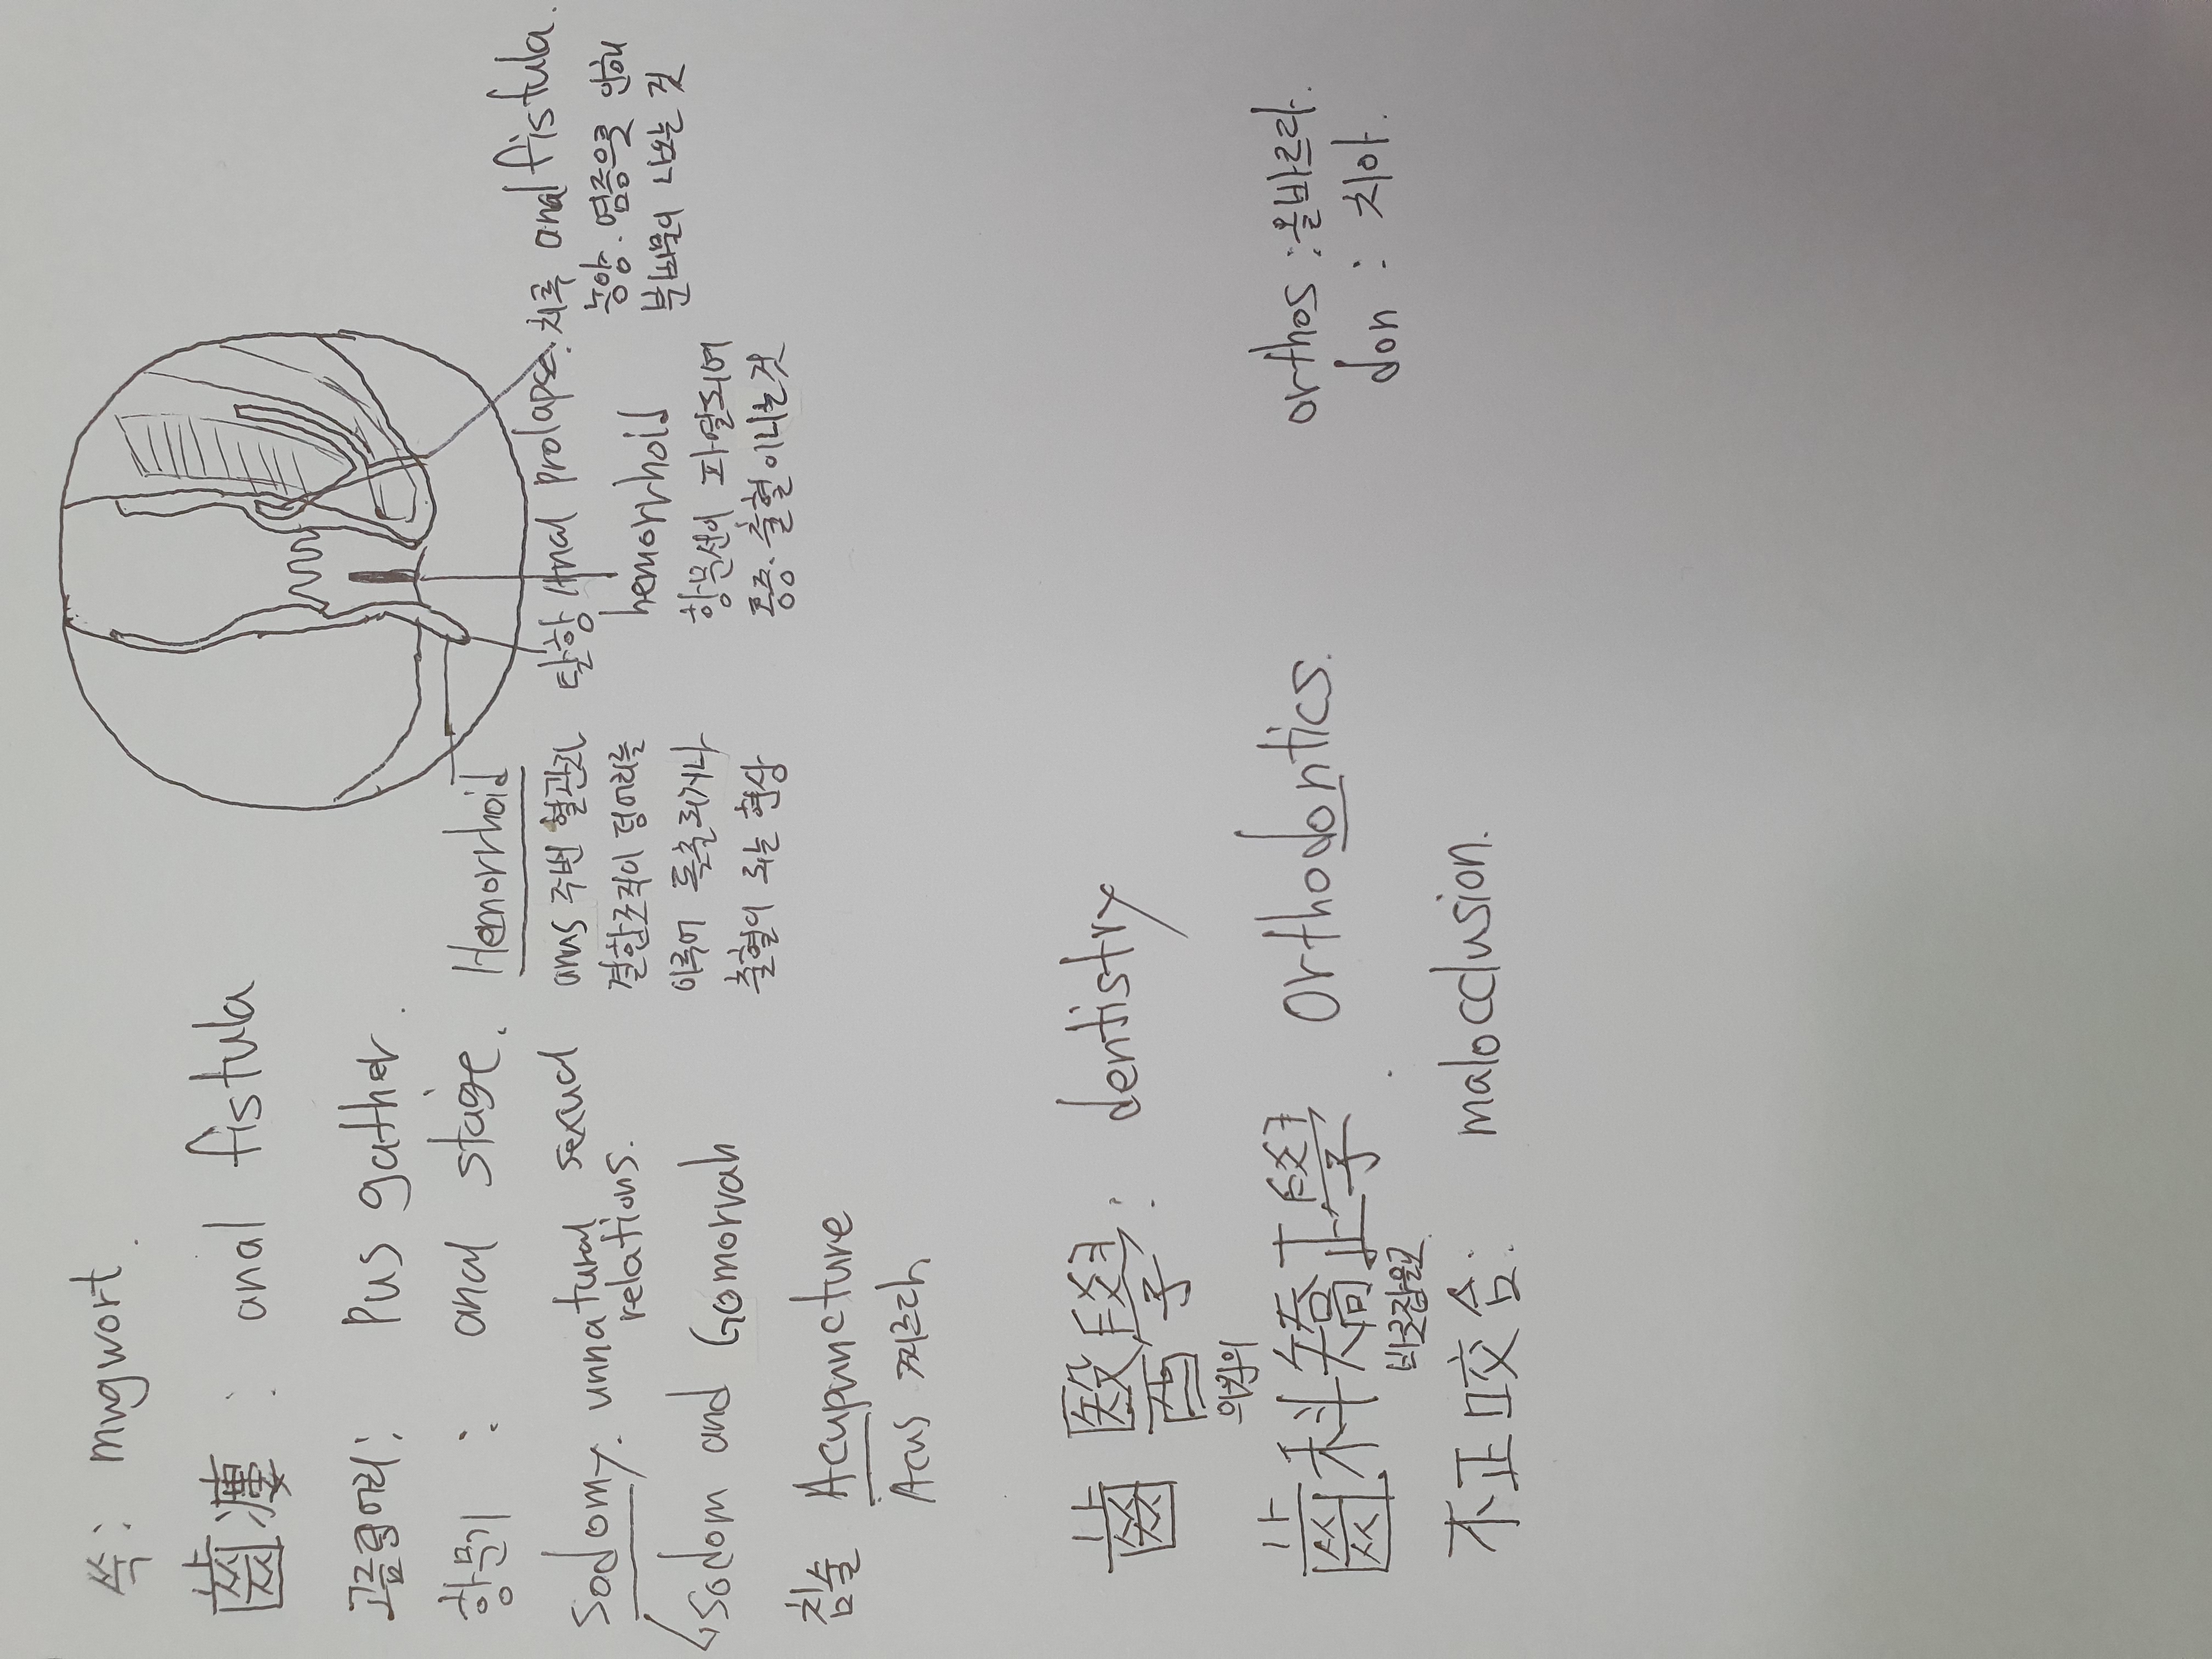 쑥: mugwort.
齒瘻 : anal fistula
고름덩어리: Pus gather.
항문기 : anal stage.
Sodomy. unnatural sexual relations.
↳ Sodom and Gomorrah
침술 Acupuncture
Acus 찌르다
Hemorrhoid
anus 주변 혈관과
결합조직이 덩어리를
이루어 돌출되거나
출혈이 되는 현상
탈항 Anal prolapse.
hemorrhoid
항문선이 파열되어
통증.출혈이나는것
치루 anal fistula.
농양.염증으로 인해
분비물이 나오는 것
齒 醫學 : dentistry
齒
의원의
齒科矯正學. Orthodontics.
바로잡을교.
orthos : 올바르다.
don : 치아.
不正咬合: malocclusion.